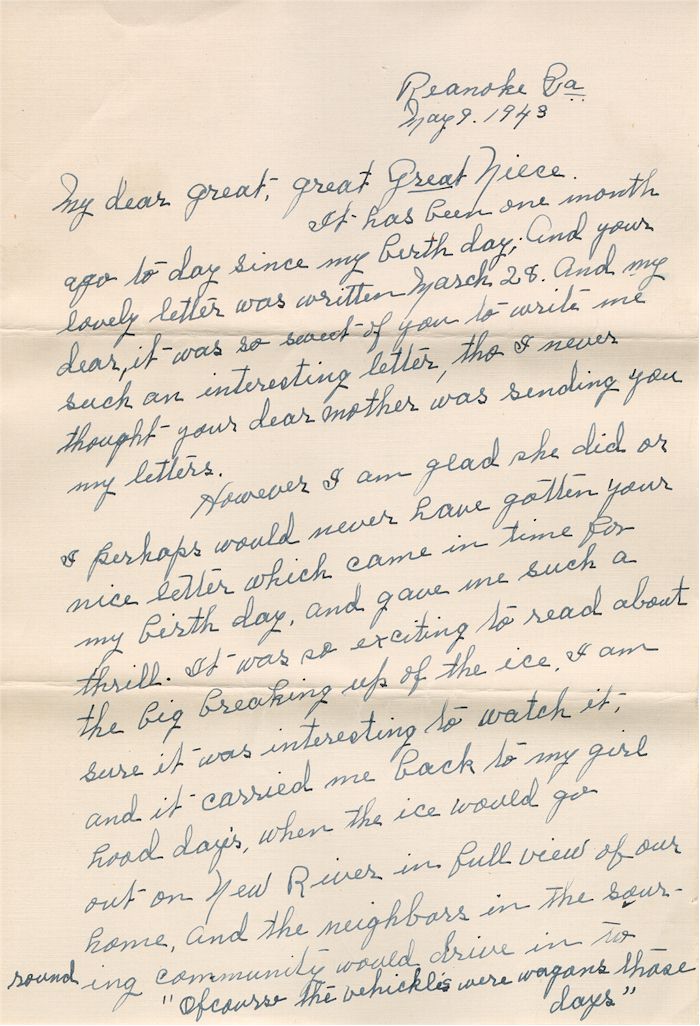 Roanoke Va
May 9. 1943
My dear great, great Great Niece.
It has been one month
ago to day since my birth day; And your
lovely letter was written March 28. And my
dear, it was so sweet of you to write me
such an interesting letter, tho I never
thought your dear mother was sending you
my letters.
However I am glad she did or
I perhaps would never have gotten your
nice letter which came in time for
my birth day, and gave me such a
thrill. It was so exciting to read about
the big breaking up of the ice. I am
sure it was interesting to watch it,
and it carried me back to my girl
hood days, when the ice would go
out on New River in full view of our
home, and the neighbors in the sour-
round ing community would drive in to
"Ofcourse the vehickles were wagons those
days"